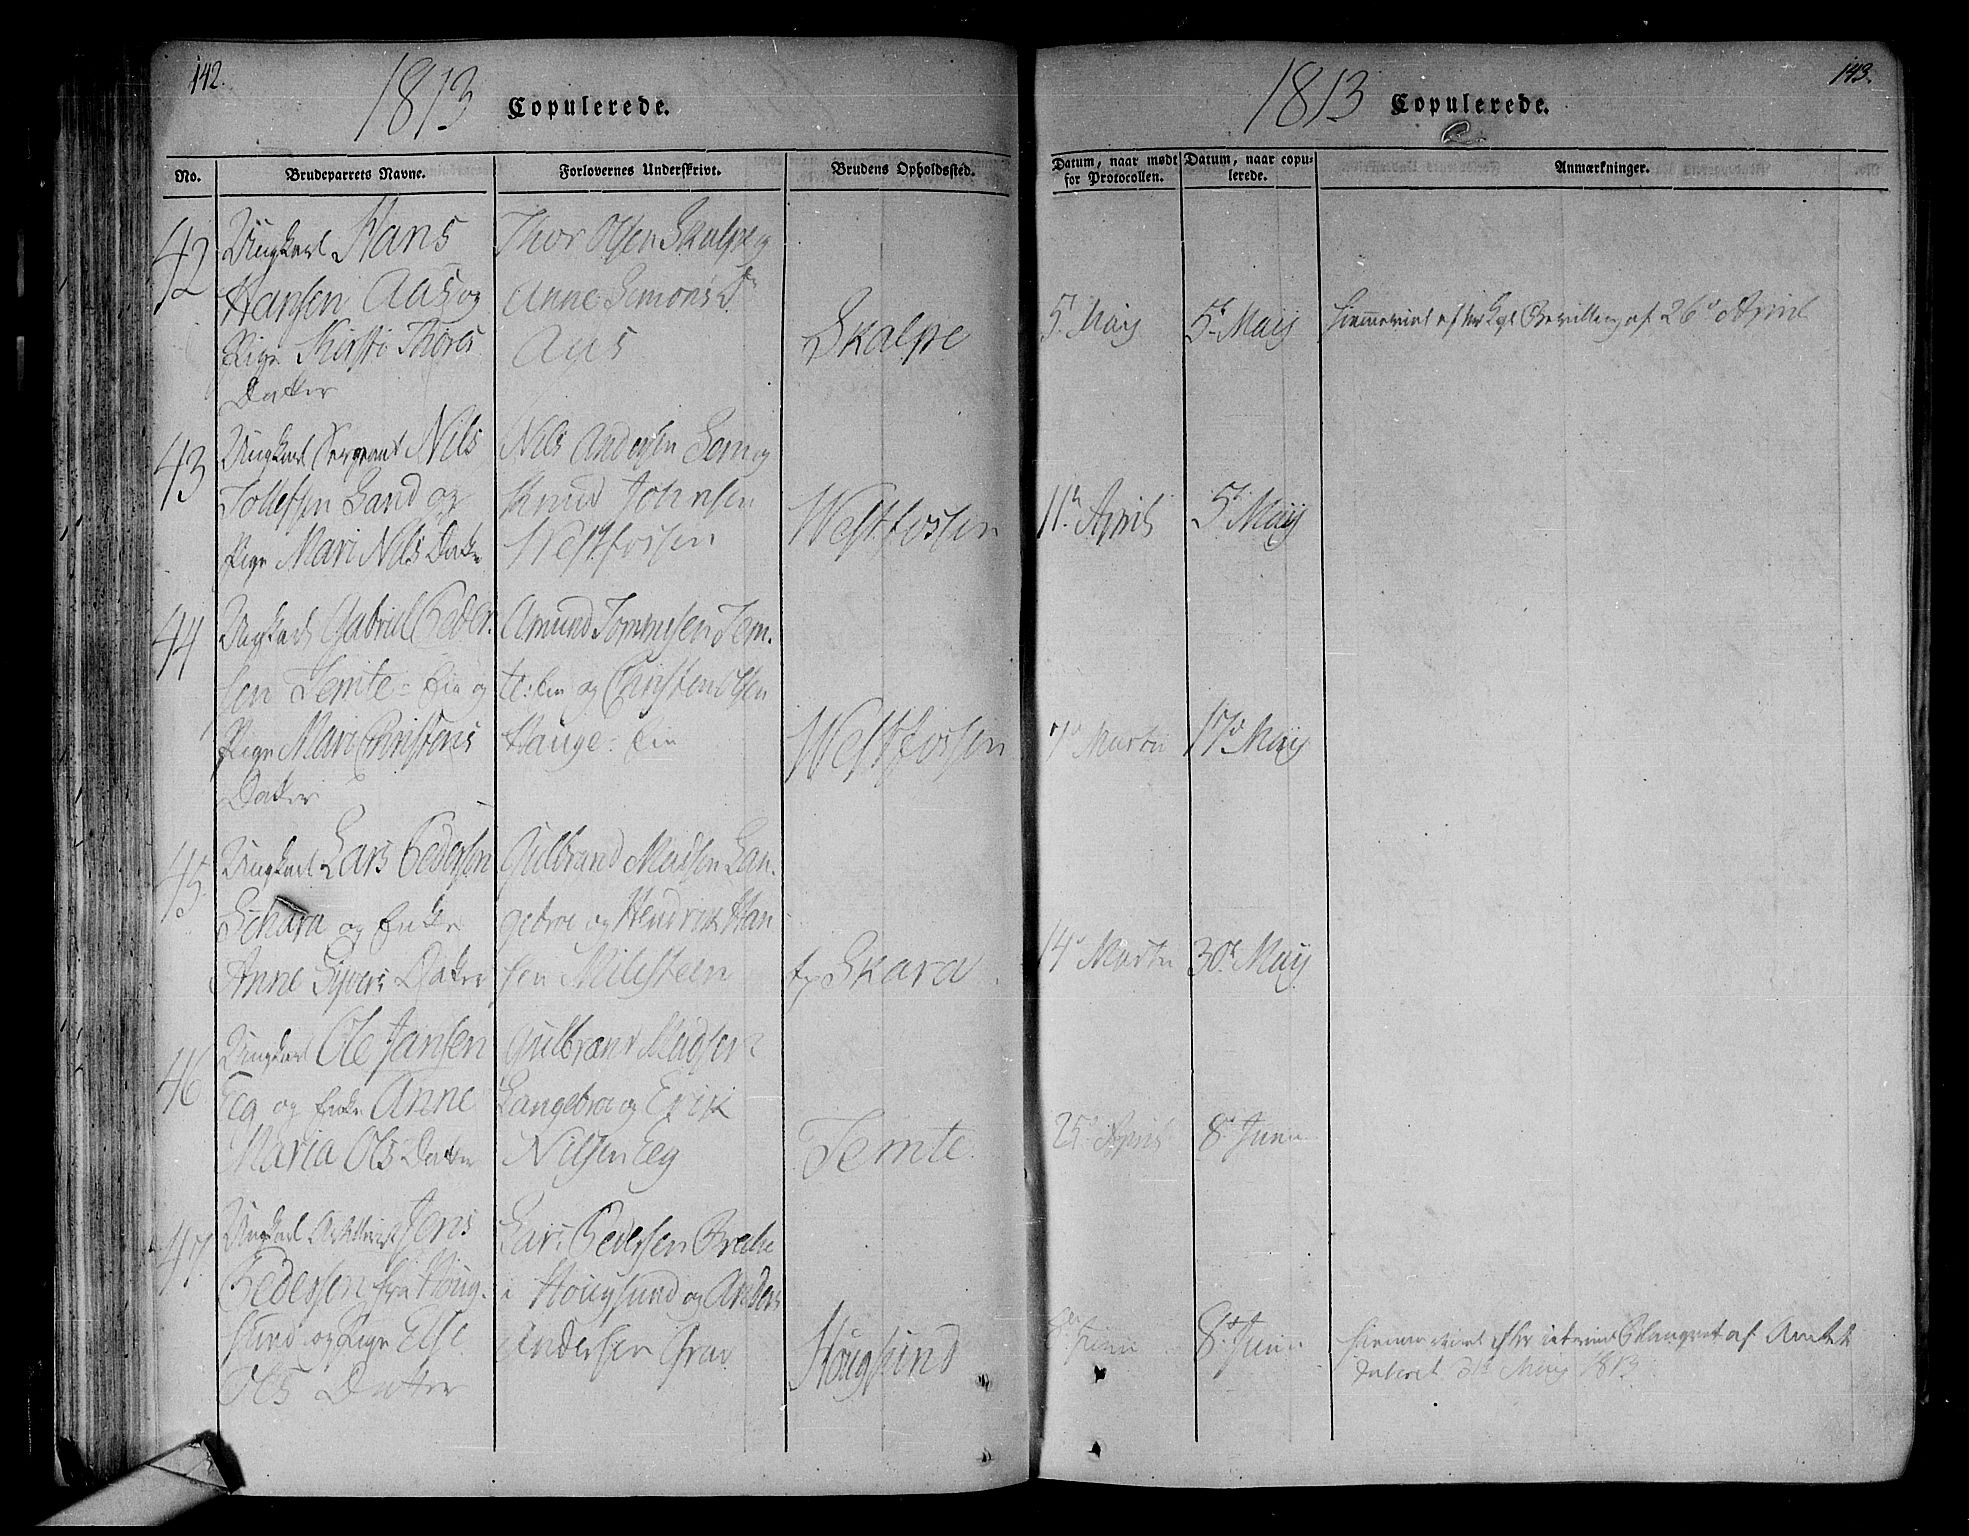 142.
1813 Copulerede.
No. Brudeparrets Navne. Forlovernes Underskrivt. Brudens Opholdssted.
42
Ungkarl Hans
Hansen Aas og
Pige Kirsti Thors
Datter
Thor Olsen Skalpe og
Anne Simons Dr
Aas
Skalpe
43
Ungkarl Sergeant Nils
Tollefsen Sand og
Pige Mari Nils Datter
Nils Andersen Sem og
Knud Johnsen
Westfossen
Westfossen
44
Ungkarl Gabriel Peder-
sen Temte-Eie og
Pige Mari Christens
Datter
Amund Tommesen Tem-
te:Eie og Christen Olsen
Hauge-Eie
Westfossen
45
Ungkarl Lars Pedersen
Schara og Enke
Anne Sivers Datter
Gulbrand Madsen Lan-
gebroe og Hendrik Han-
sen Milesteen
Skara
46
Ungkarl Ole Jansen
Eeg og Enke Anne
Maria Ols Datter
Gulbrand Madsen
Langebroe og Erik
Nilsen Eeg
Temte
47
Ungkarl Jens
Pedersen fra Houg-
sund og Pige Else
Ols Datter
Lars Pedersen
i Hougsund og Anders
Andersen
Hougsund
143.
1813 Copulerede.
Datum, naar mødt for Protocollen. Datum, naar copulerede. Anmærkninger.
5 Maij 5 Maij Hiemmeviet efter Kgl Bevilling af 26d April
11 April 5 Maij
7d Martii 17d Maij
14d Martii 30d Maij
25d April 8d Junii
8de Junii 8d Junii Hiemmeviet efter af Amtet
dateret Maij 1813